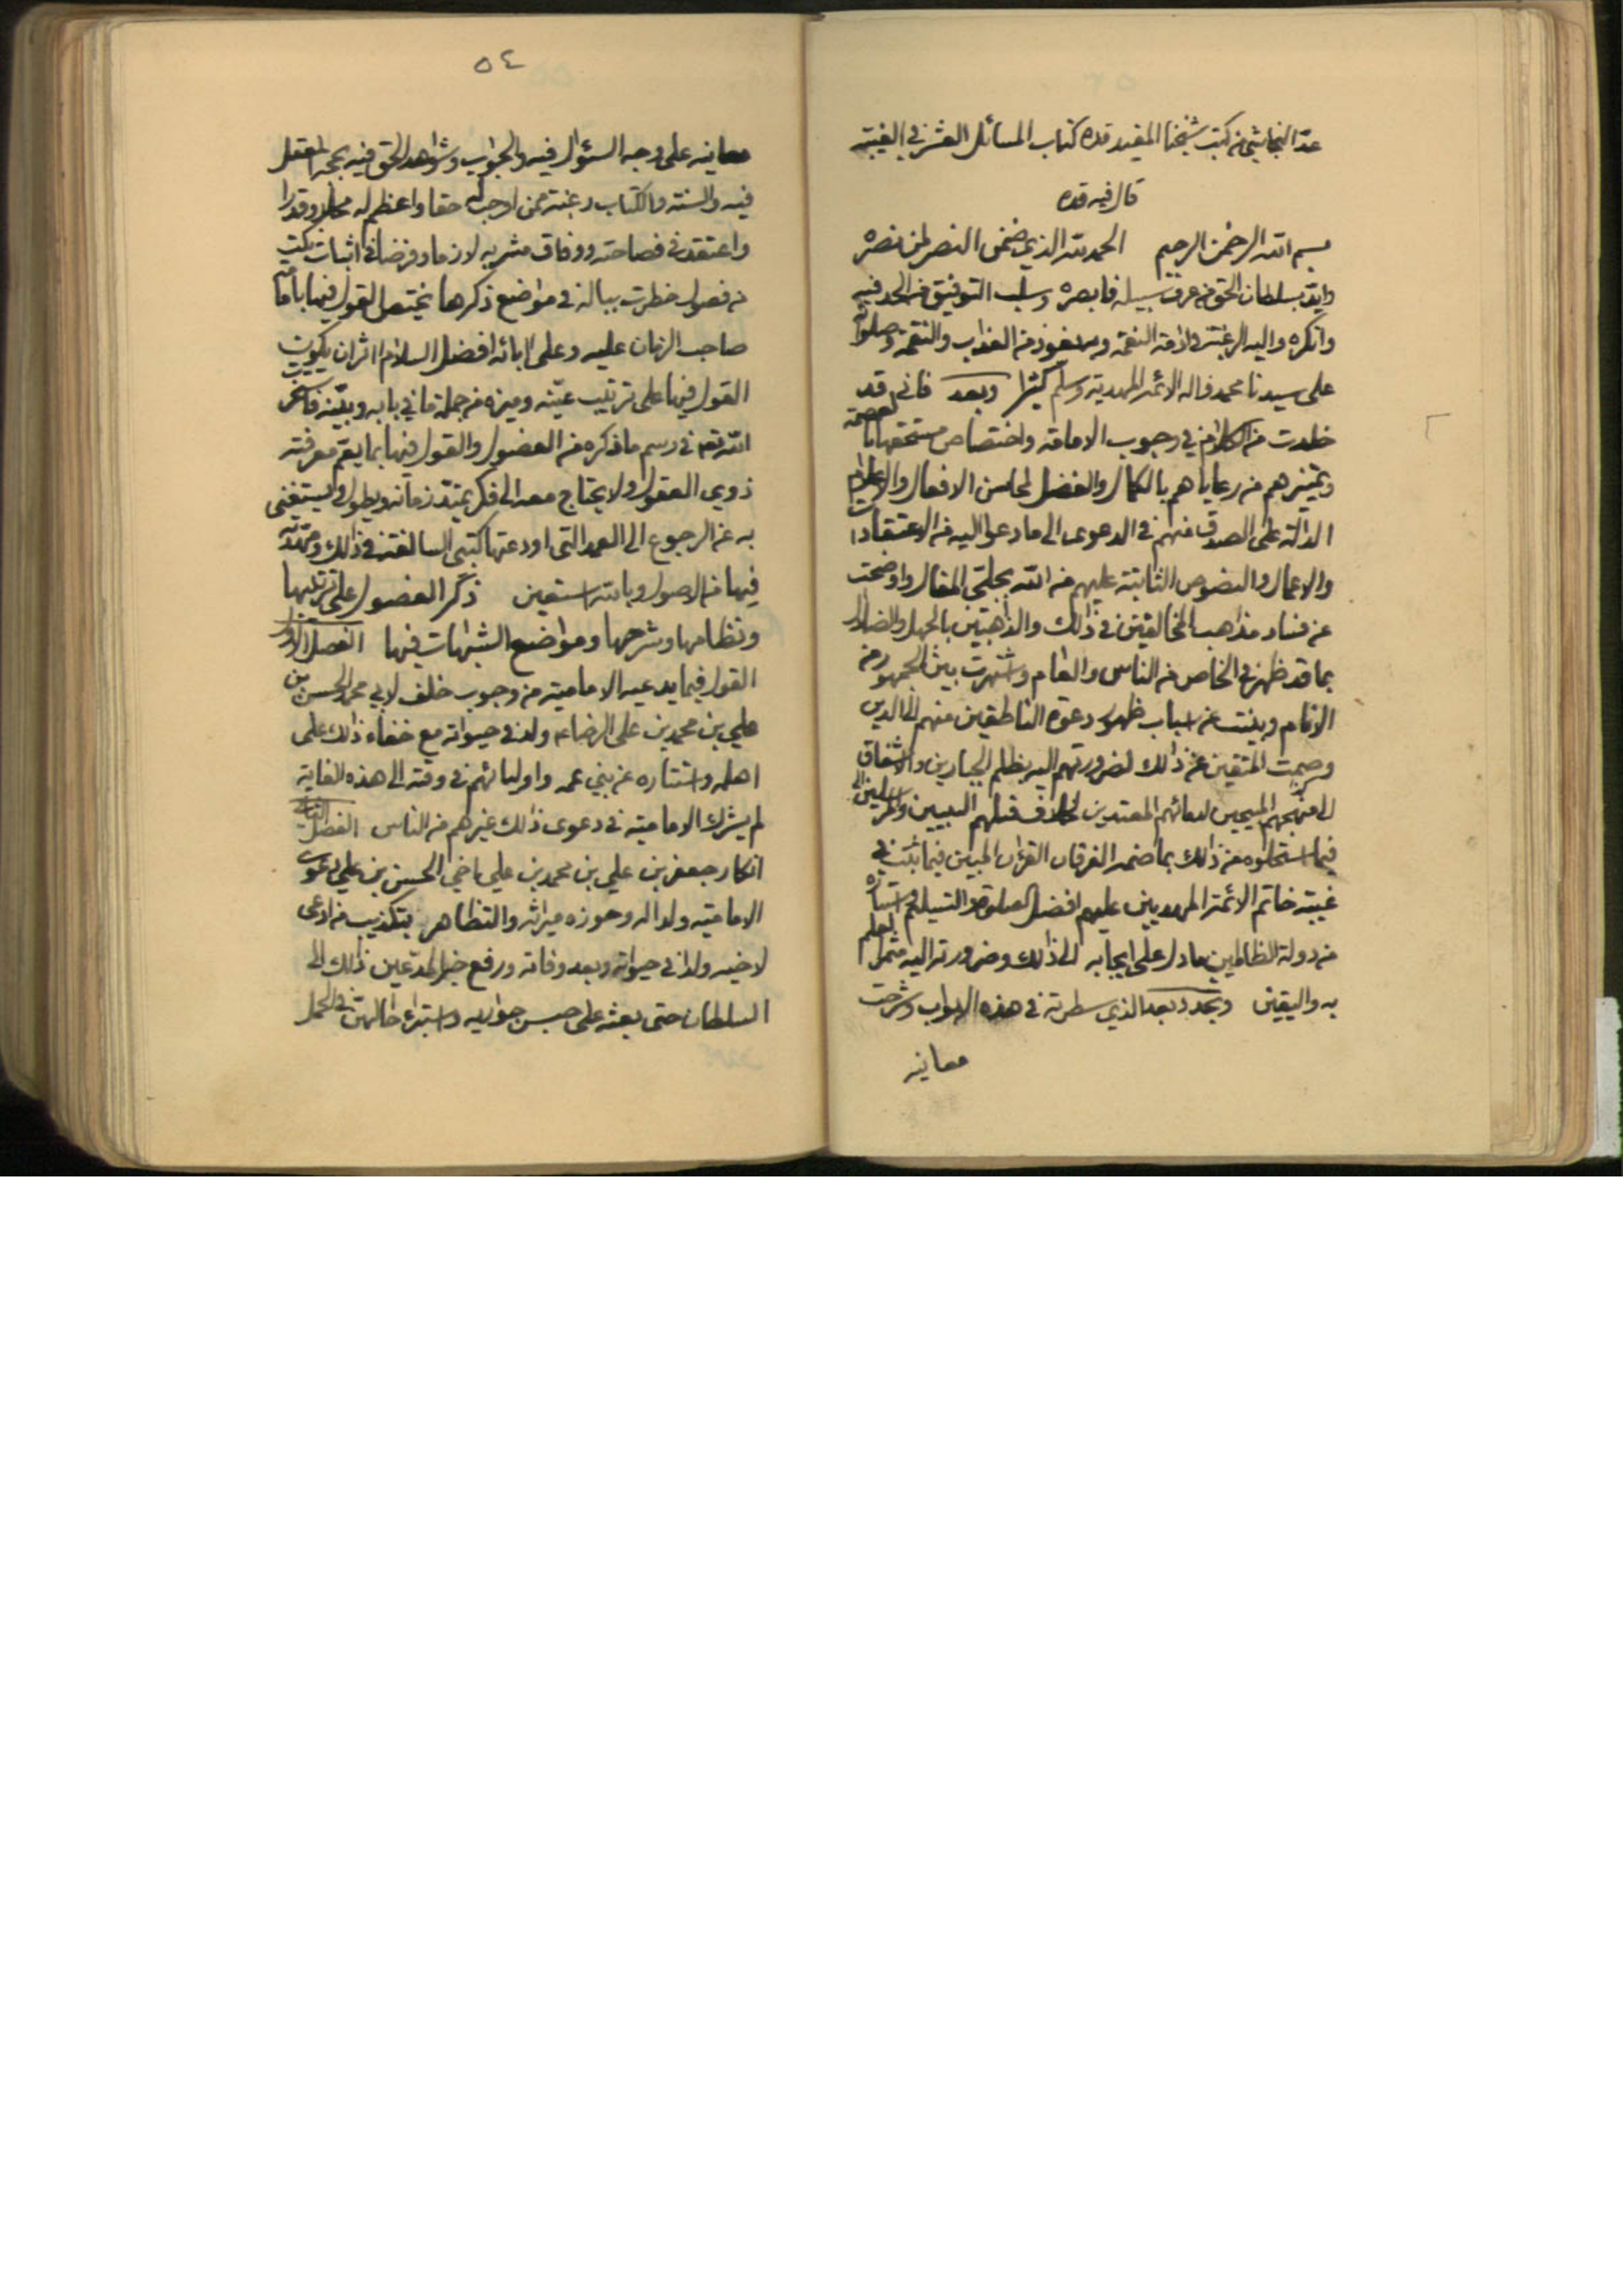 عد النجاشي من كتب شيخنا المفيد قده كتاب المسائل العشر في الغيبة
قال فيه قده
بسم الله الرحمن الرحيم الحمد لله الذي ضمن النصر لمن نصره
وايد بسلطان الحق من عرف سبيله فابصره وسلب التوفيق من الحد فيه
وانكره واليه الرغبة في ادامة النعمة وبه نعوذ من العذاب والنقمة وصلواته
على سيدنا محمد واله الائمة المهدية وسلم كثيرا وبعد فاني قد
خلدت من الكلام في وجوب الامامة واختصاص مستحقها بالعصمة
وتميزهم من رعاياهم بالكمال والفضل لمحاسن الافعال والاعلام
الدالة على الصدق منهم في الدعوى الى ما دعوا اليه من الاعتقادات
والاعمال والنصوص الثابتة عليهم من الله بجلي المقال واوضحت
عن فساد مذاهب المخالفين في ذلك والذاهبين بالجهل والضلال
بما قد ظهر في الخاص من الناس والعام واشتهرت بين الجمهور من
الانام وبينت عن اسباب ظهور دعوة الناطقين منهم الى الدين
وصمت المتقين عن ذلك لضرورتهم اليه بظلم الجبارين والاشفاق
على مهجهم المبيحين لدمائهم المعتدين بخلاف قتلهم النبيين والمرسلين
فيما استحلوه من ذلك بما ضمنه الفرقان القرءان المبين فيما ثبت في
غيبة خاتم الائمة المهديين عليهم افضل الصلوة والتسليم واستتاره
من دولة الظالمين ما دل على ايجابه الى ذلك وضرورته اليه مثمر العلم
به واليقين وتجدد بعد الذي سطرته في هذه الابواب وشرحت
معانيه
٥٤
معانيه على وجه السؤال فيه والجواب وشواهد الحق فيه بحجة العقل
فيه والسنة والكتاب رغبة ممن اوجب له حقا واعظم له محلا وقدرا
واعتقد في فصاحته ووفاق مشربه لازما وفرضا في اثبات نكت
من فصول خطرت بباله في مواضع ذكرها يختص القول فيها بامامة
صاحب الزمان عليه وعلى ابائه افضل السلام اثر ان يكون
القول فيها على ترتيب عينه وميزه من جملة ما في بابه وبينه فاستخرت
الله تع في رسم ما ذكره من الفصول والقول فيها بما يعم معرفته
ذوي العقول ولا يحتاج معه الى فكر يمتد زمانه ويطول ويستغنى
به عن الرجوع الى العمد التي اودعتها كتبي السالفة في ذلك ومهدته
فيها من الاصول وبالله استعين ذكر الفصول على ترتيبها
ونظامها وشرحها ومواضع الشبهات فيها الفصل الاول
القول فيما يدعيه الامامية من وجوب خلف لابي محمد الحسن بن
علي بن محمد بن علي الرضا ع ولد في حيوته مع خفاء ذلك على
اهله واستتاره عن بني عمه واوليائهم في وقته الى هذه الغاية
لم يشرك الامامية في دعوى ذلك غيرهم من الناس الفصل الثاني
انكار جعفر بن علي بن محمد بن علي اخي الحسن بن علي دعوى
الامامية ولدا له وحوزه ميراثه والتظاهر بتكذيب من ادعى
لاخيه ولدا في حيوته وبعد وفاته ورفع خبر المدعين ذلك الى
السلطان حتى بعثه على حبس جواريه واستبراء حالهن في الحمل